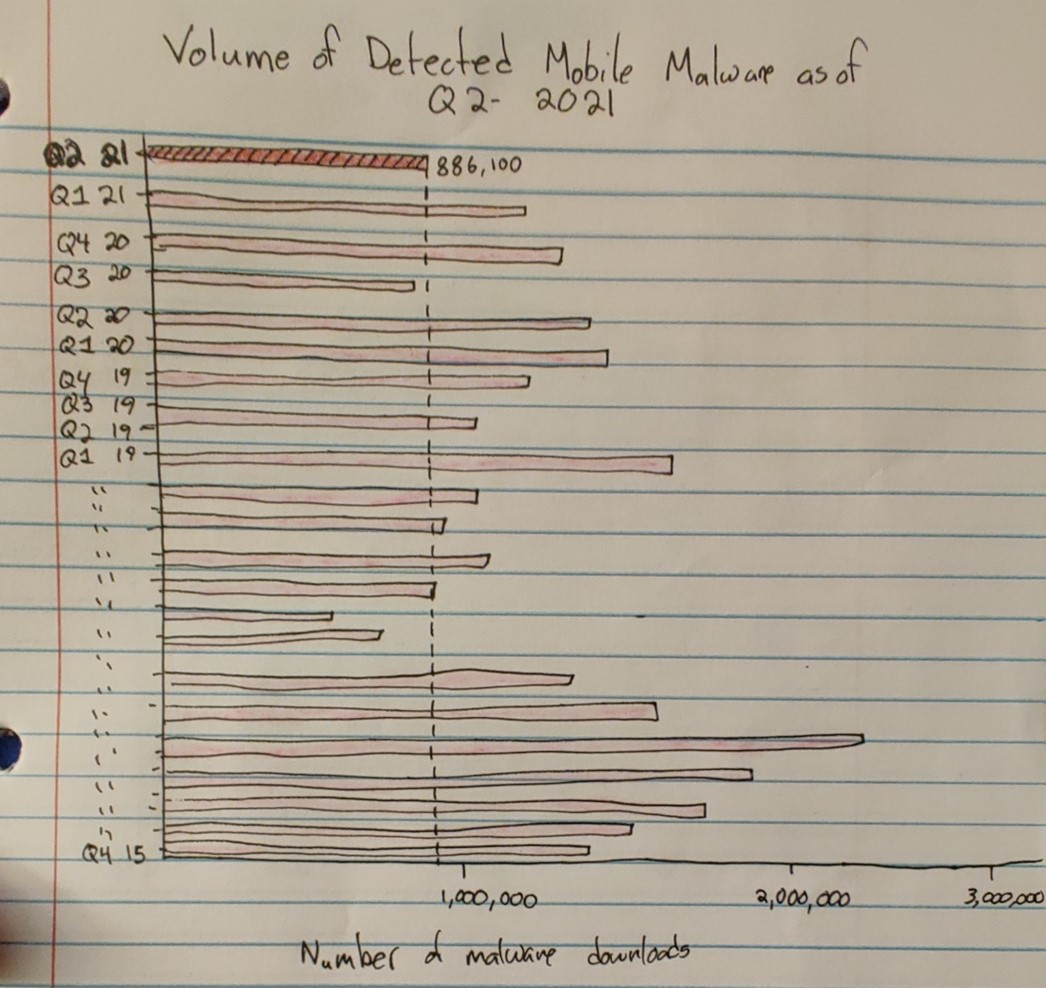 Volume of Detected Mobile Malware as of
Q2- 2021
Q2 21
886,100
Q1 21
Q4 20
Q3 20
Q2 20
Q1 20
Q4 19
Q3 19
Q2 19
Q1 19
"
"
"
"
"
"
"
"
"
"
"
"
"
Q4 15
1,000,000 2,000,000 3,000,000
Number of malware downloads